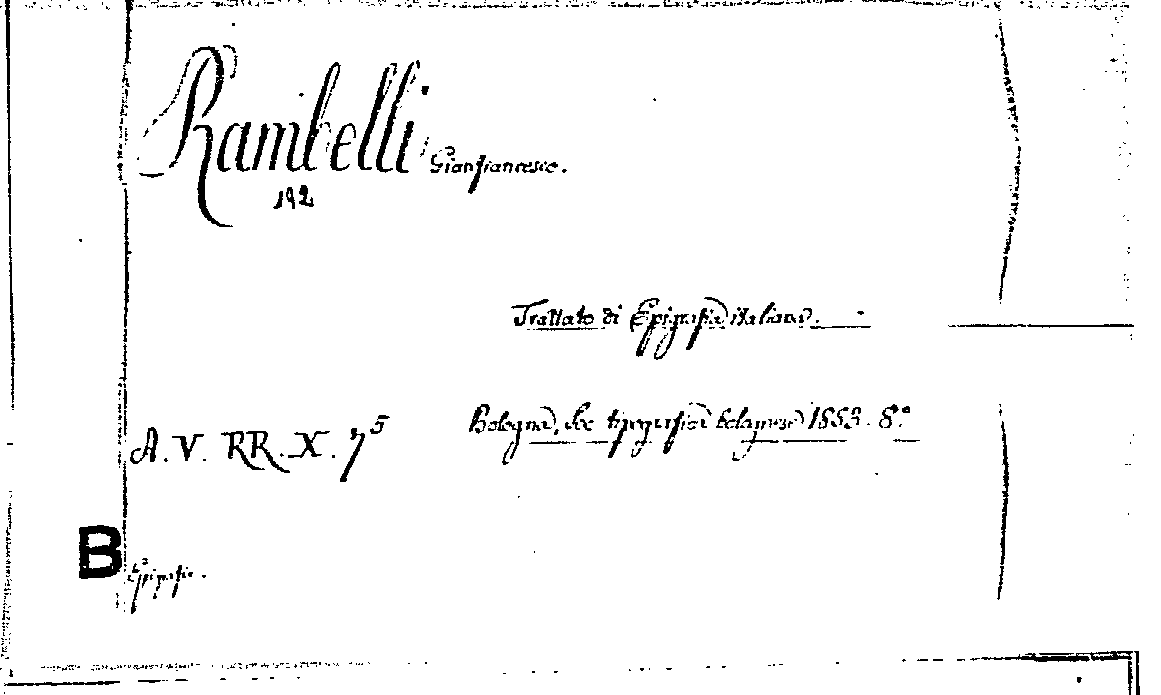 Rambelli Gianfrancesco.
192
Trattato di Epigrafia italiana.
Bologna, soc tipografica bolognese 1853. 8.°
A. V. RR. X. 7 5
B
Epigrafia.